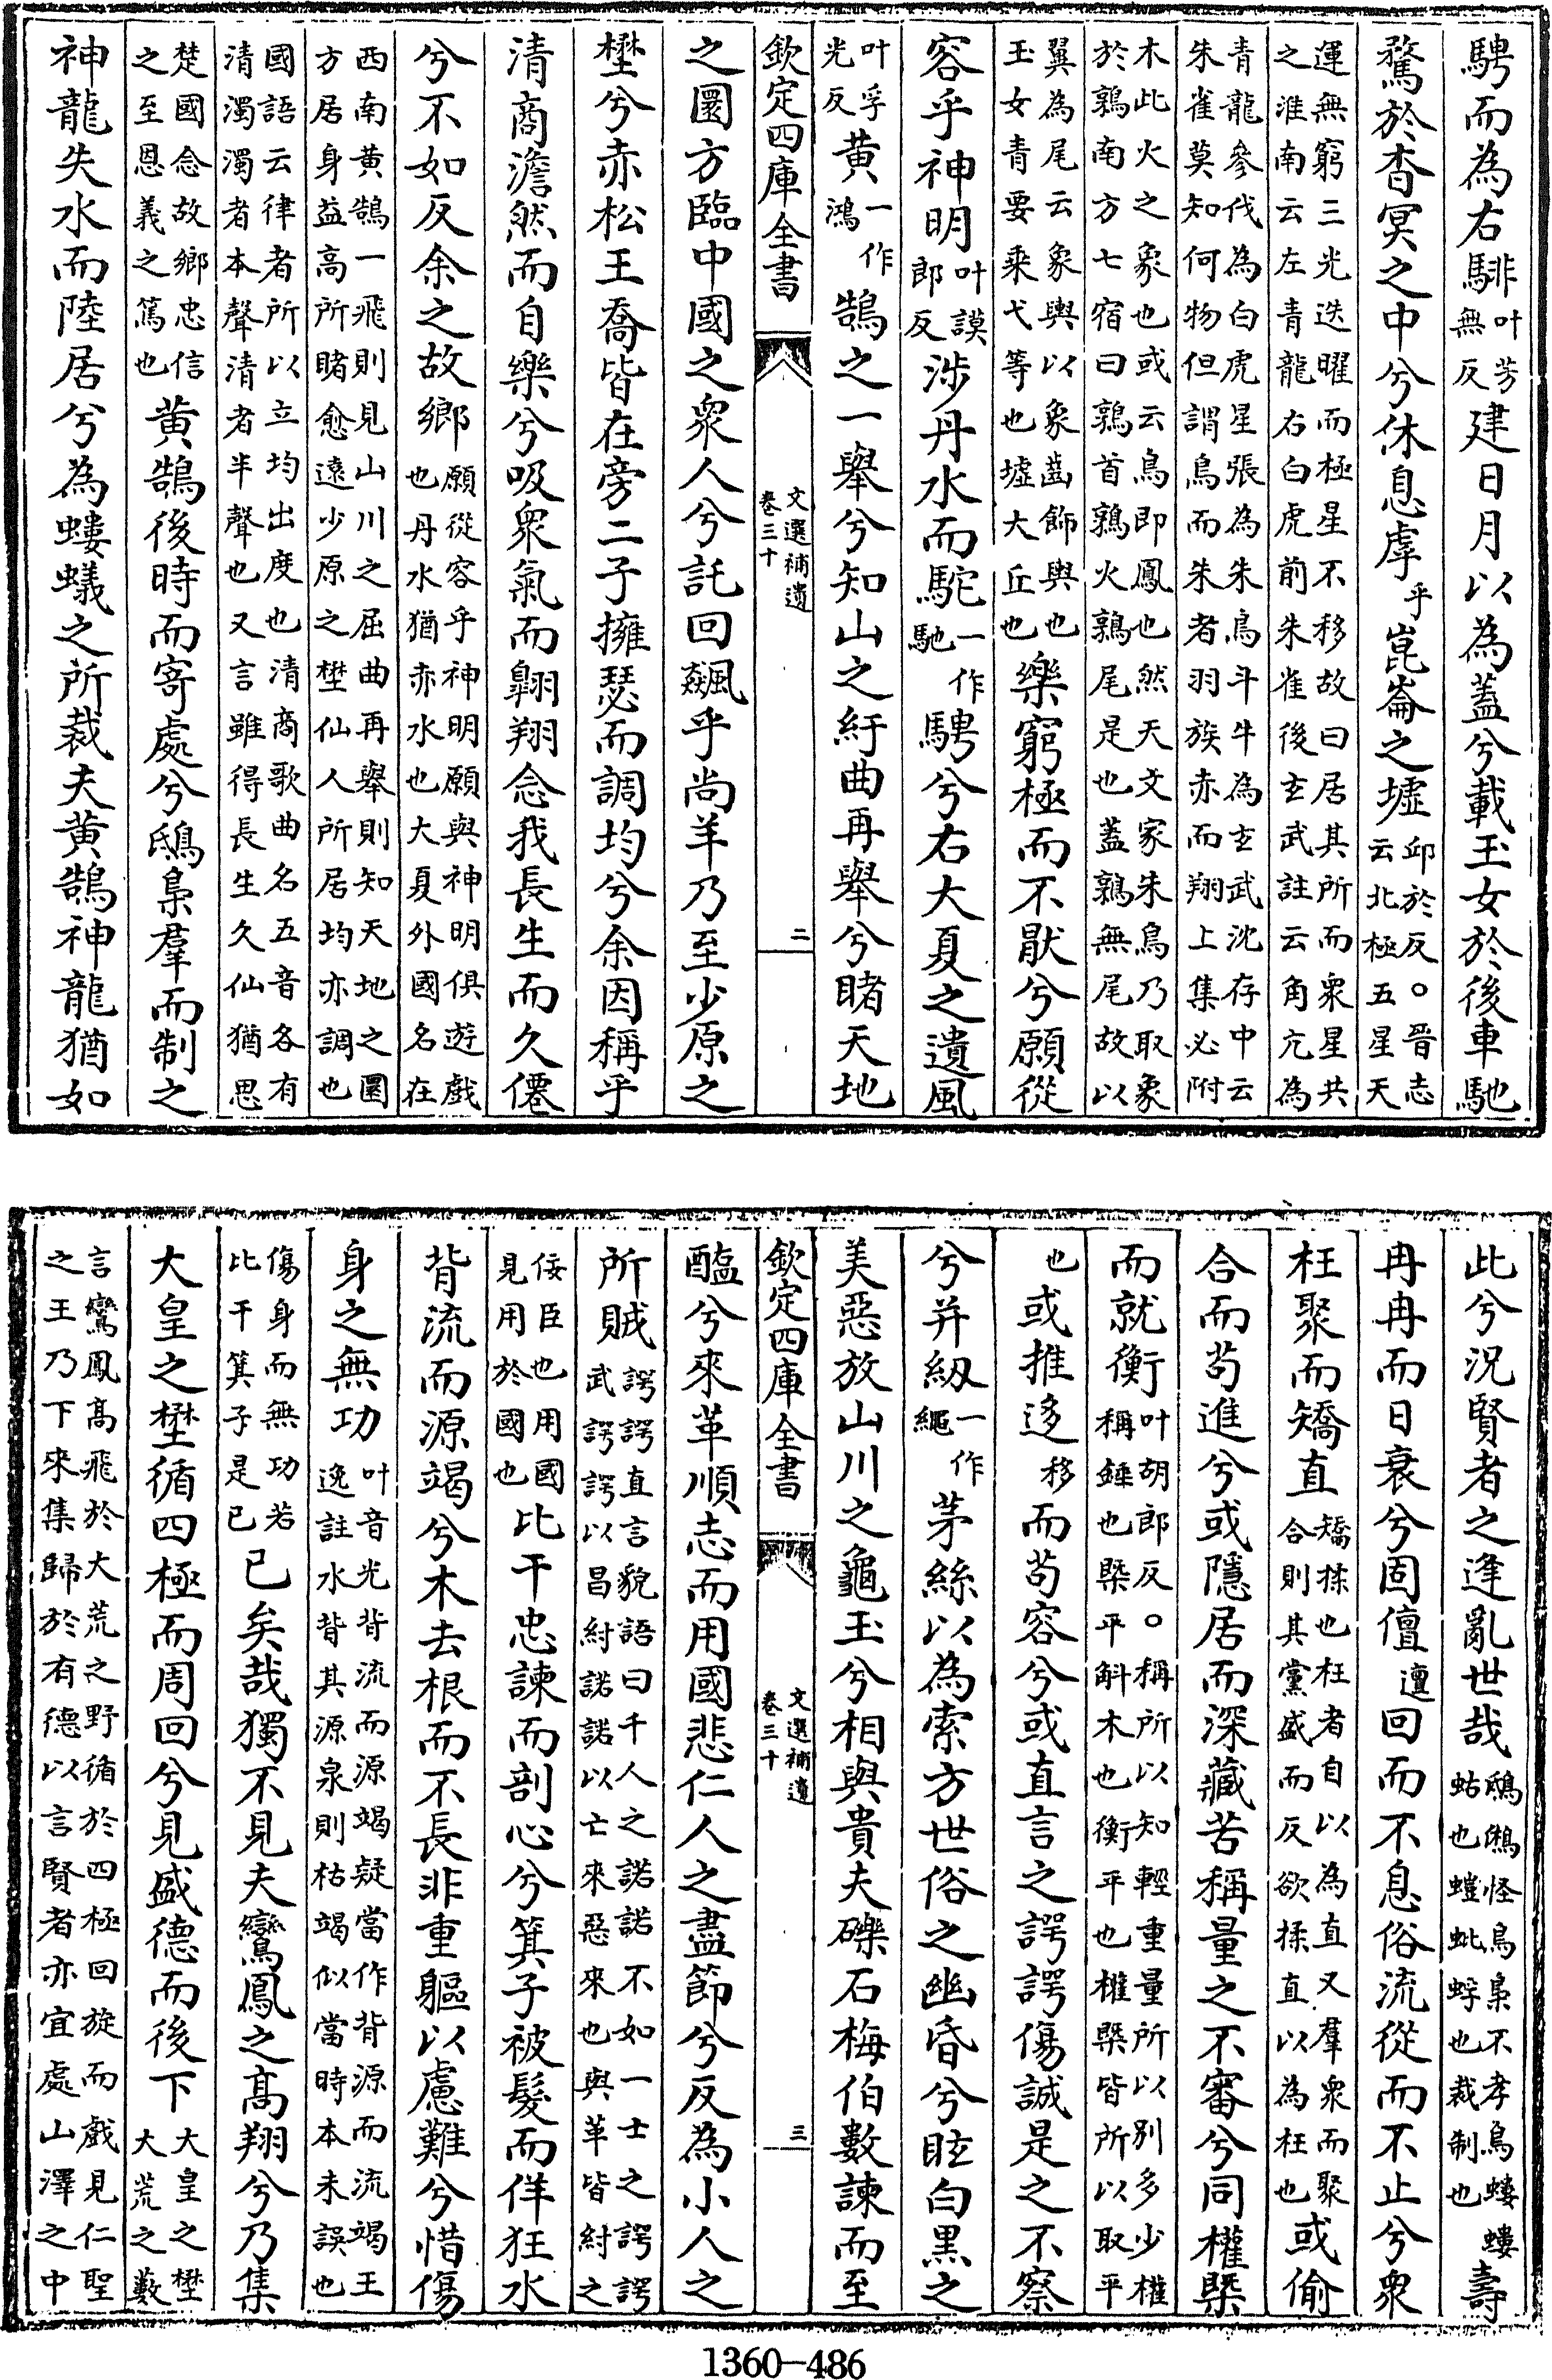 騁而為右騑叶芳無反建日月以為蓋兮載玉女於後車馳
騖於杳冥之中兮休息虖乎崑崙之墟邱於反○晉志云北極五星天
運無窮三光迭曜而極星不移故曰居其所而衆星共
之淮南云左青龍右白虎前朱雀後玄武註云角亢為
青龍參伐為白虎星張為朱鳥斗牛為玄武沈存中云
朱雀莫知何物但謂鳥而朱者羽族赤而翔上集必附
木此火之象也或云鳥即鳳也然天文家朱鳥乃取象
於鶉南方七宿曰鶉首鶉火鶉尾是也蓋鶉無尾故以
翼為尾云象輿以象齒飾輿也玉女青要乘弋等也墟大丘也樂窮極而不厭兮願從
容乎神明叶謨郎反涉丹水而駝一作馳騁兮右大夏之遺風
叶孚光反黃一作鴻鵠之一舉兮知山之紆曲再舉兮睹天地
欽定四庫全書 文選補遺卷三十 二
之圜方臨中國之衆人兮託回飆乎尚羊乃至少原之
壄兮赤松王喬皆在旁二子擁瑟而調均兮余因稱乎
清商澹然而自樂兮吸衆氣而翺翔念我長生而久僊
兮不如反余之故鄉願從容乎神明願與神明俱遊戲也丹水猶赤水也大夏外國名在
西南黃鵠一飛則見山川之屈曲再舉則知天地之圜
方居身益高所睹愈遠少原之壄仙人所居均亦調也
國語云律者所以立均出度也清商歌曲名五音各有
清濁濁者本聲清者半聲也又言雖得長生久仙猶思
楚國念故鄉忠信之至恩義之篤也黃鵠後時而寄處兮鴟梟羣而制之
神龍失水而陸居兮為螻蟻之所裁夫黃鵠神龍猶如
此兮況賢者之逢亂世哉鴟鵂怪鳥梟不孝鳥螻螻蛄也螘蚍蜉也裁制也壽
冉冉而日衰兮固儃邅回而不息俗流從而不止兮衆
枉聚而矯直矯揉也枉者自以為直又羣衆而聚合則其黨盛而反欲揉直以為枉也或偷
合而苟進兮或隱居而深藏苦稱量之不審兮同權槩
而就衡叶胡郎反○稱所以知輕重量所以別多少權稱錘也槩平斛木也衡平也權槩皆所以取平
也或推迻移而苟容兮或直言之諤諤傷誠是之不察
兮并紉一作繩茅絲以為索方世俗之幽昏兮眩白黑之
美惡放山川之龜玉兮相與貴夫礫石梅伯數諫而至
欽定四庫全書 文選補遺卷三十 三
醢兮來革順志而用國悲仁人之盡節兮反為小人之
所賊諤諤直言貌語曰千人之諾諾不如一士之諤諤武諤諤以昌紂諾諾以亡來惡來也與革皆紂之
佞臣也用國見用於國也比干忠諫而剖心兮箕子被髮而佯狂水
背流而源竭兮木去根而不長非重軀以慮難兮惜傷
身之無功叶音光背流而源竭疑當作背源而流竭王逸註水背其源泉則枯竭似當時本未誤也
傷身而無功若比干箕子是已已矣哉獨不見夫鸞鳳之高翔兮乃集
大皇之壄循四極而周回兮見盛德而後下大皇之壄大荒之藪
言鸞鳳高飛於大荒之野循於四極回旋而戲見仁聖
之王乃下來集歸於有德以言賢者亦宜處山澤之中
1360-486